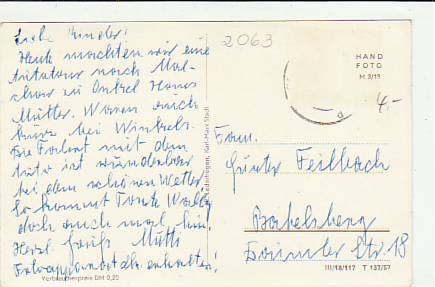 Liebe Kinder!
Heut machten wir eine
Autotour nach Mal-
chow zu Onkel Hans
Mutter. Waren auch
kurz bei Winkels.
Die Fahrt mit dem
Auto ist wunderbar
bei dem schönen Wetter.
So kommt Tante Wally
doch auch mal hin.
Herzl. Grüße Mutti
Fotoapparat dk. erhalten!
Verbraucherpreis DM 0,20
Karl-Marx-Stadt
2063
HAND
FOTO
M 3/19
4,-
Fam.
Günter Feilbach
Babelsberg
Daimler Str. 18
III/18/117 T 137/57